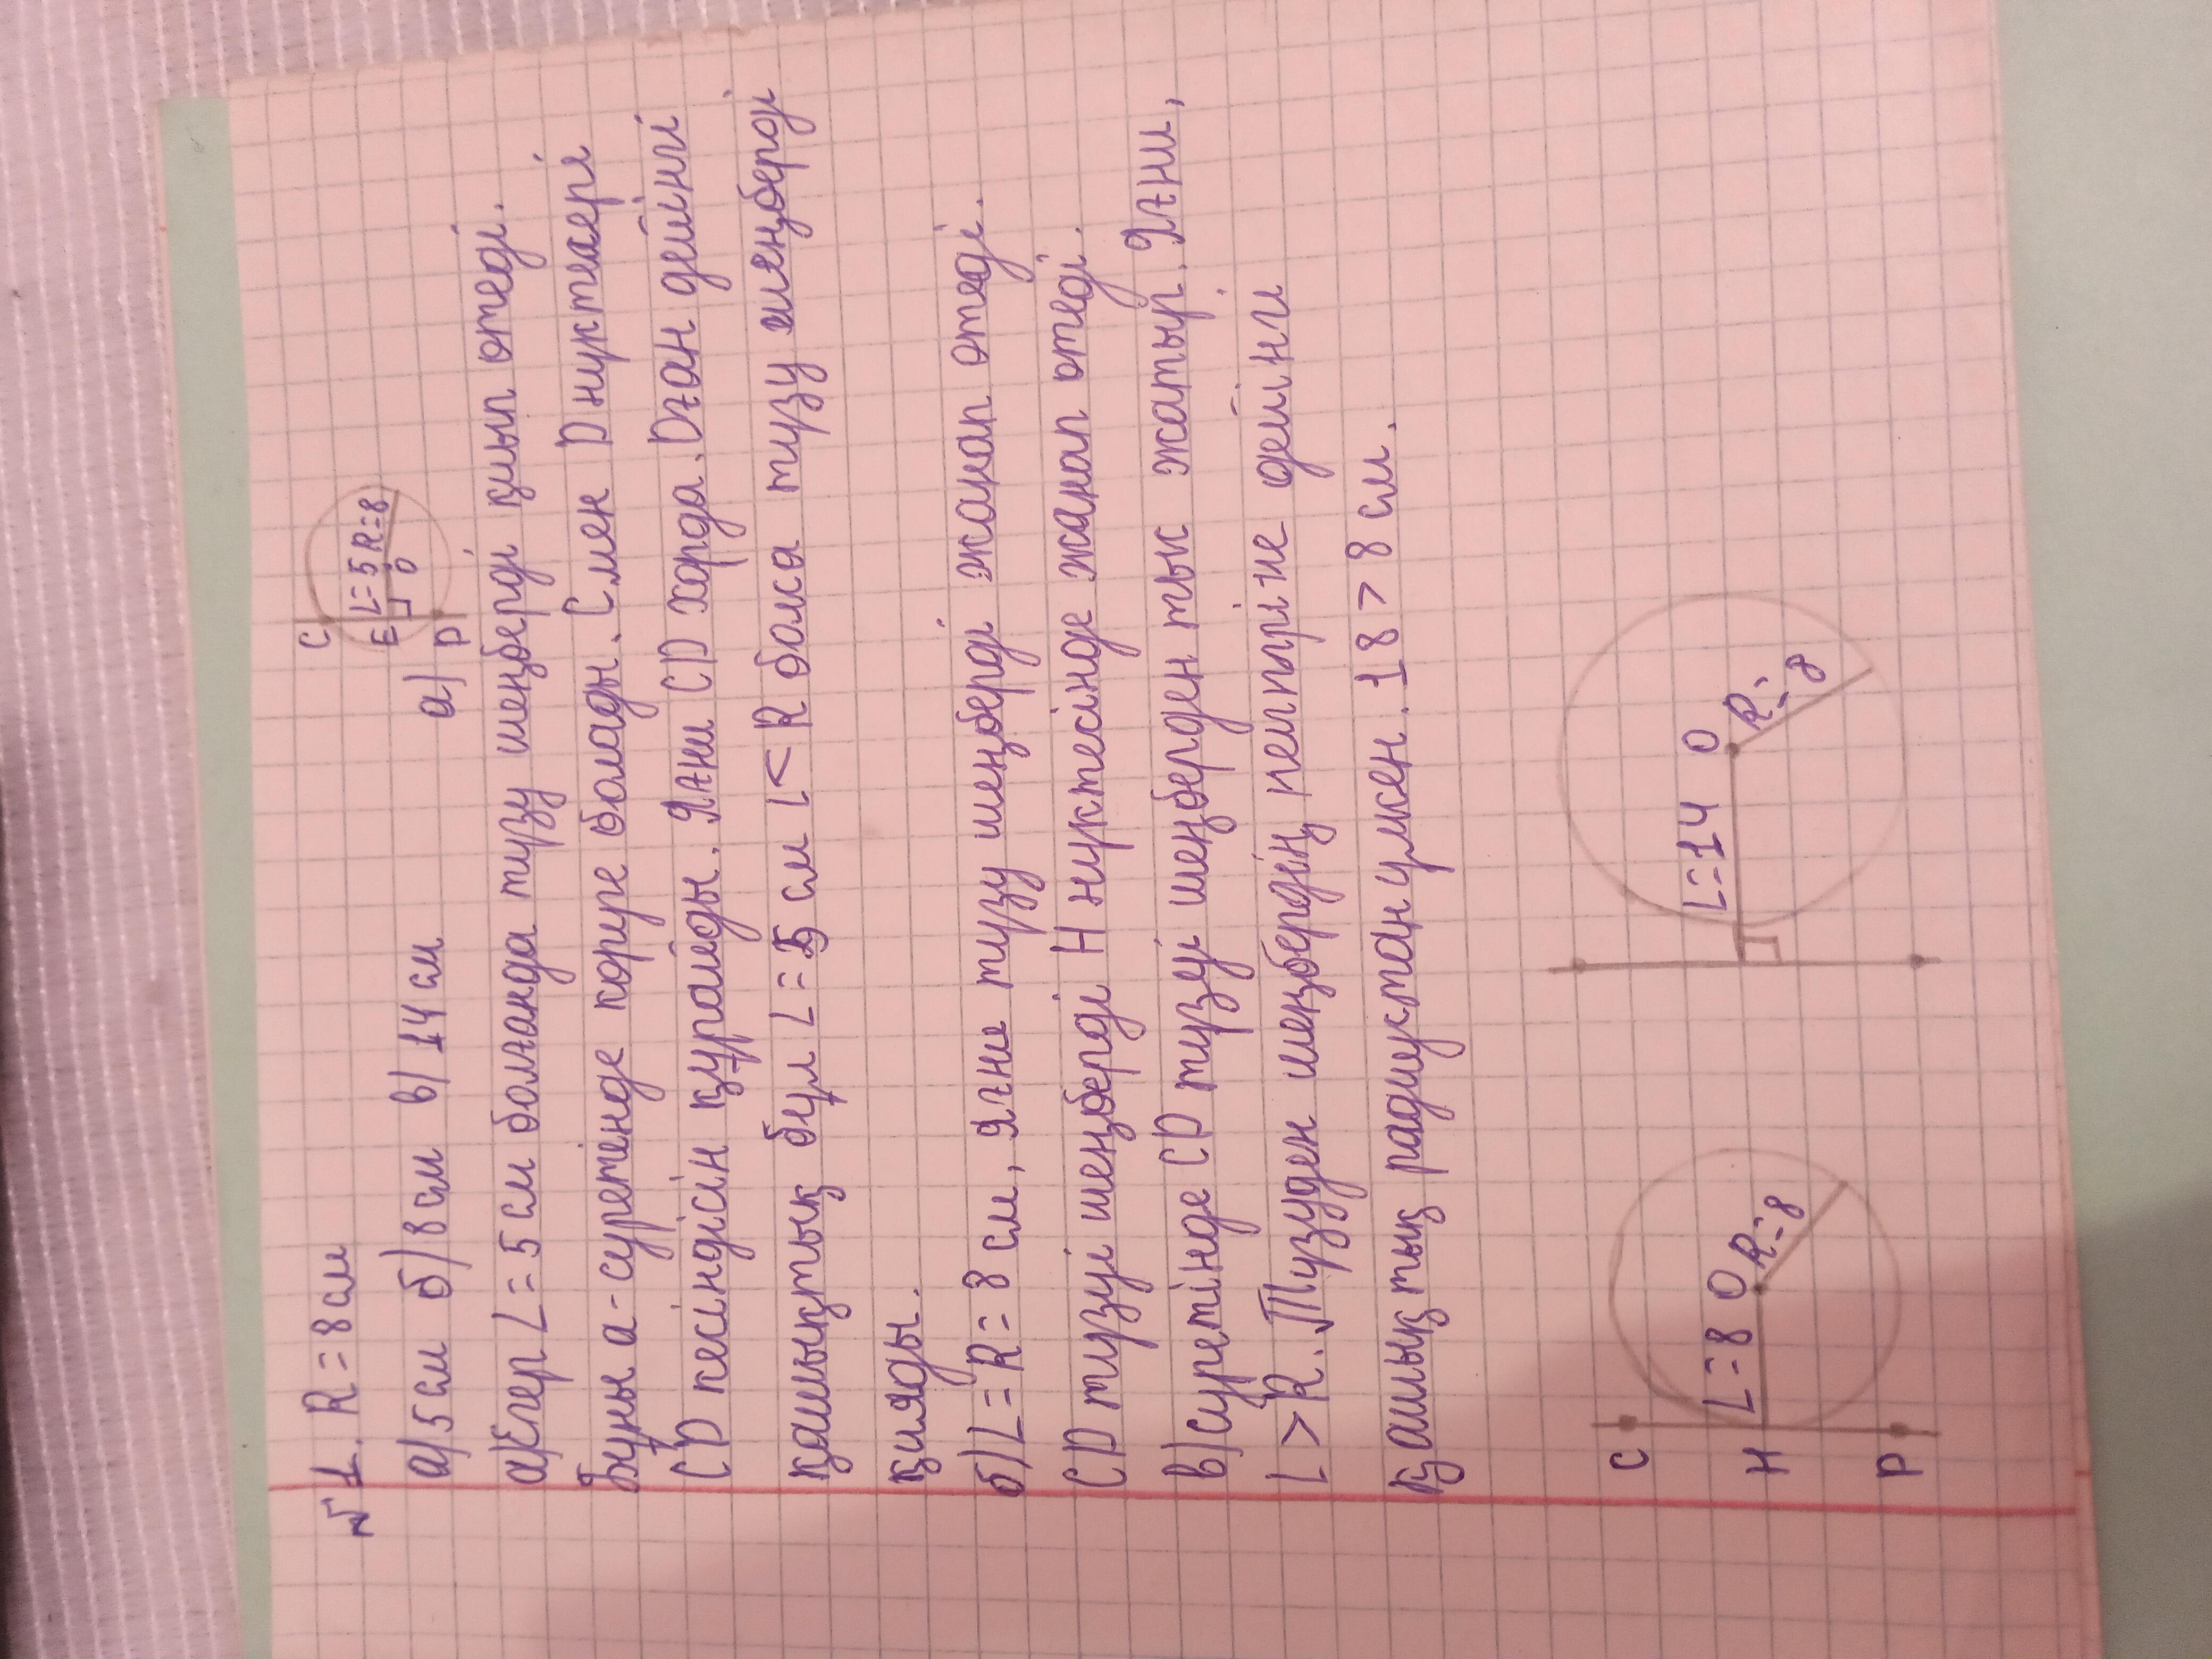 №1. R=8см
а)5см б)8см в)14см
C
E L=5 R=8
O
а) D
а)Егер L=5см болғанда түзу шеңберді қиып отеді.
Бұны а-суретінде көруге болады. C мен D нүктелері
CD кесіндісін құрайды. Яғни CD хорда. Dған дейінгі
қашықтық бұл L=5 см L<R болса түзу шеңберді
қияды.
б)L=R=8 см, яғни түзу шеңберді жанап отеді.
CD түзуі шеңберді H нүктесінде жанап отеді.
в)Суретінде CD түзуі шеңберден тыс жатыр. Яғни,
L>R. Түзуден шеңбердің центріне дейінгі
қашықтық радиустан үлкен. 18>8см.
C
H L=8 O R=8
D
L=14 O R=8